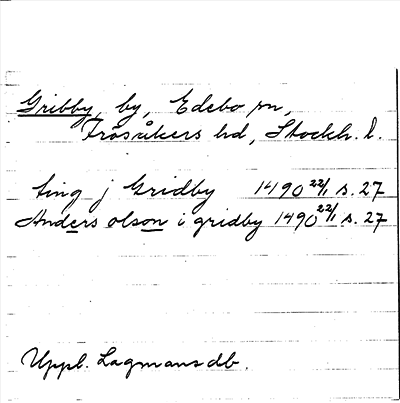 Gribby, by, Edebo sn,
Frösåkers hd, Stockh. l.
ting j Gridby 1490 22/1 s. 27
Anders olson i gridby 1490 22/1 s. 27
Uppl. Lagmansdb.